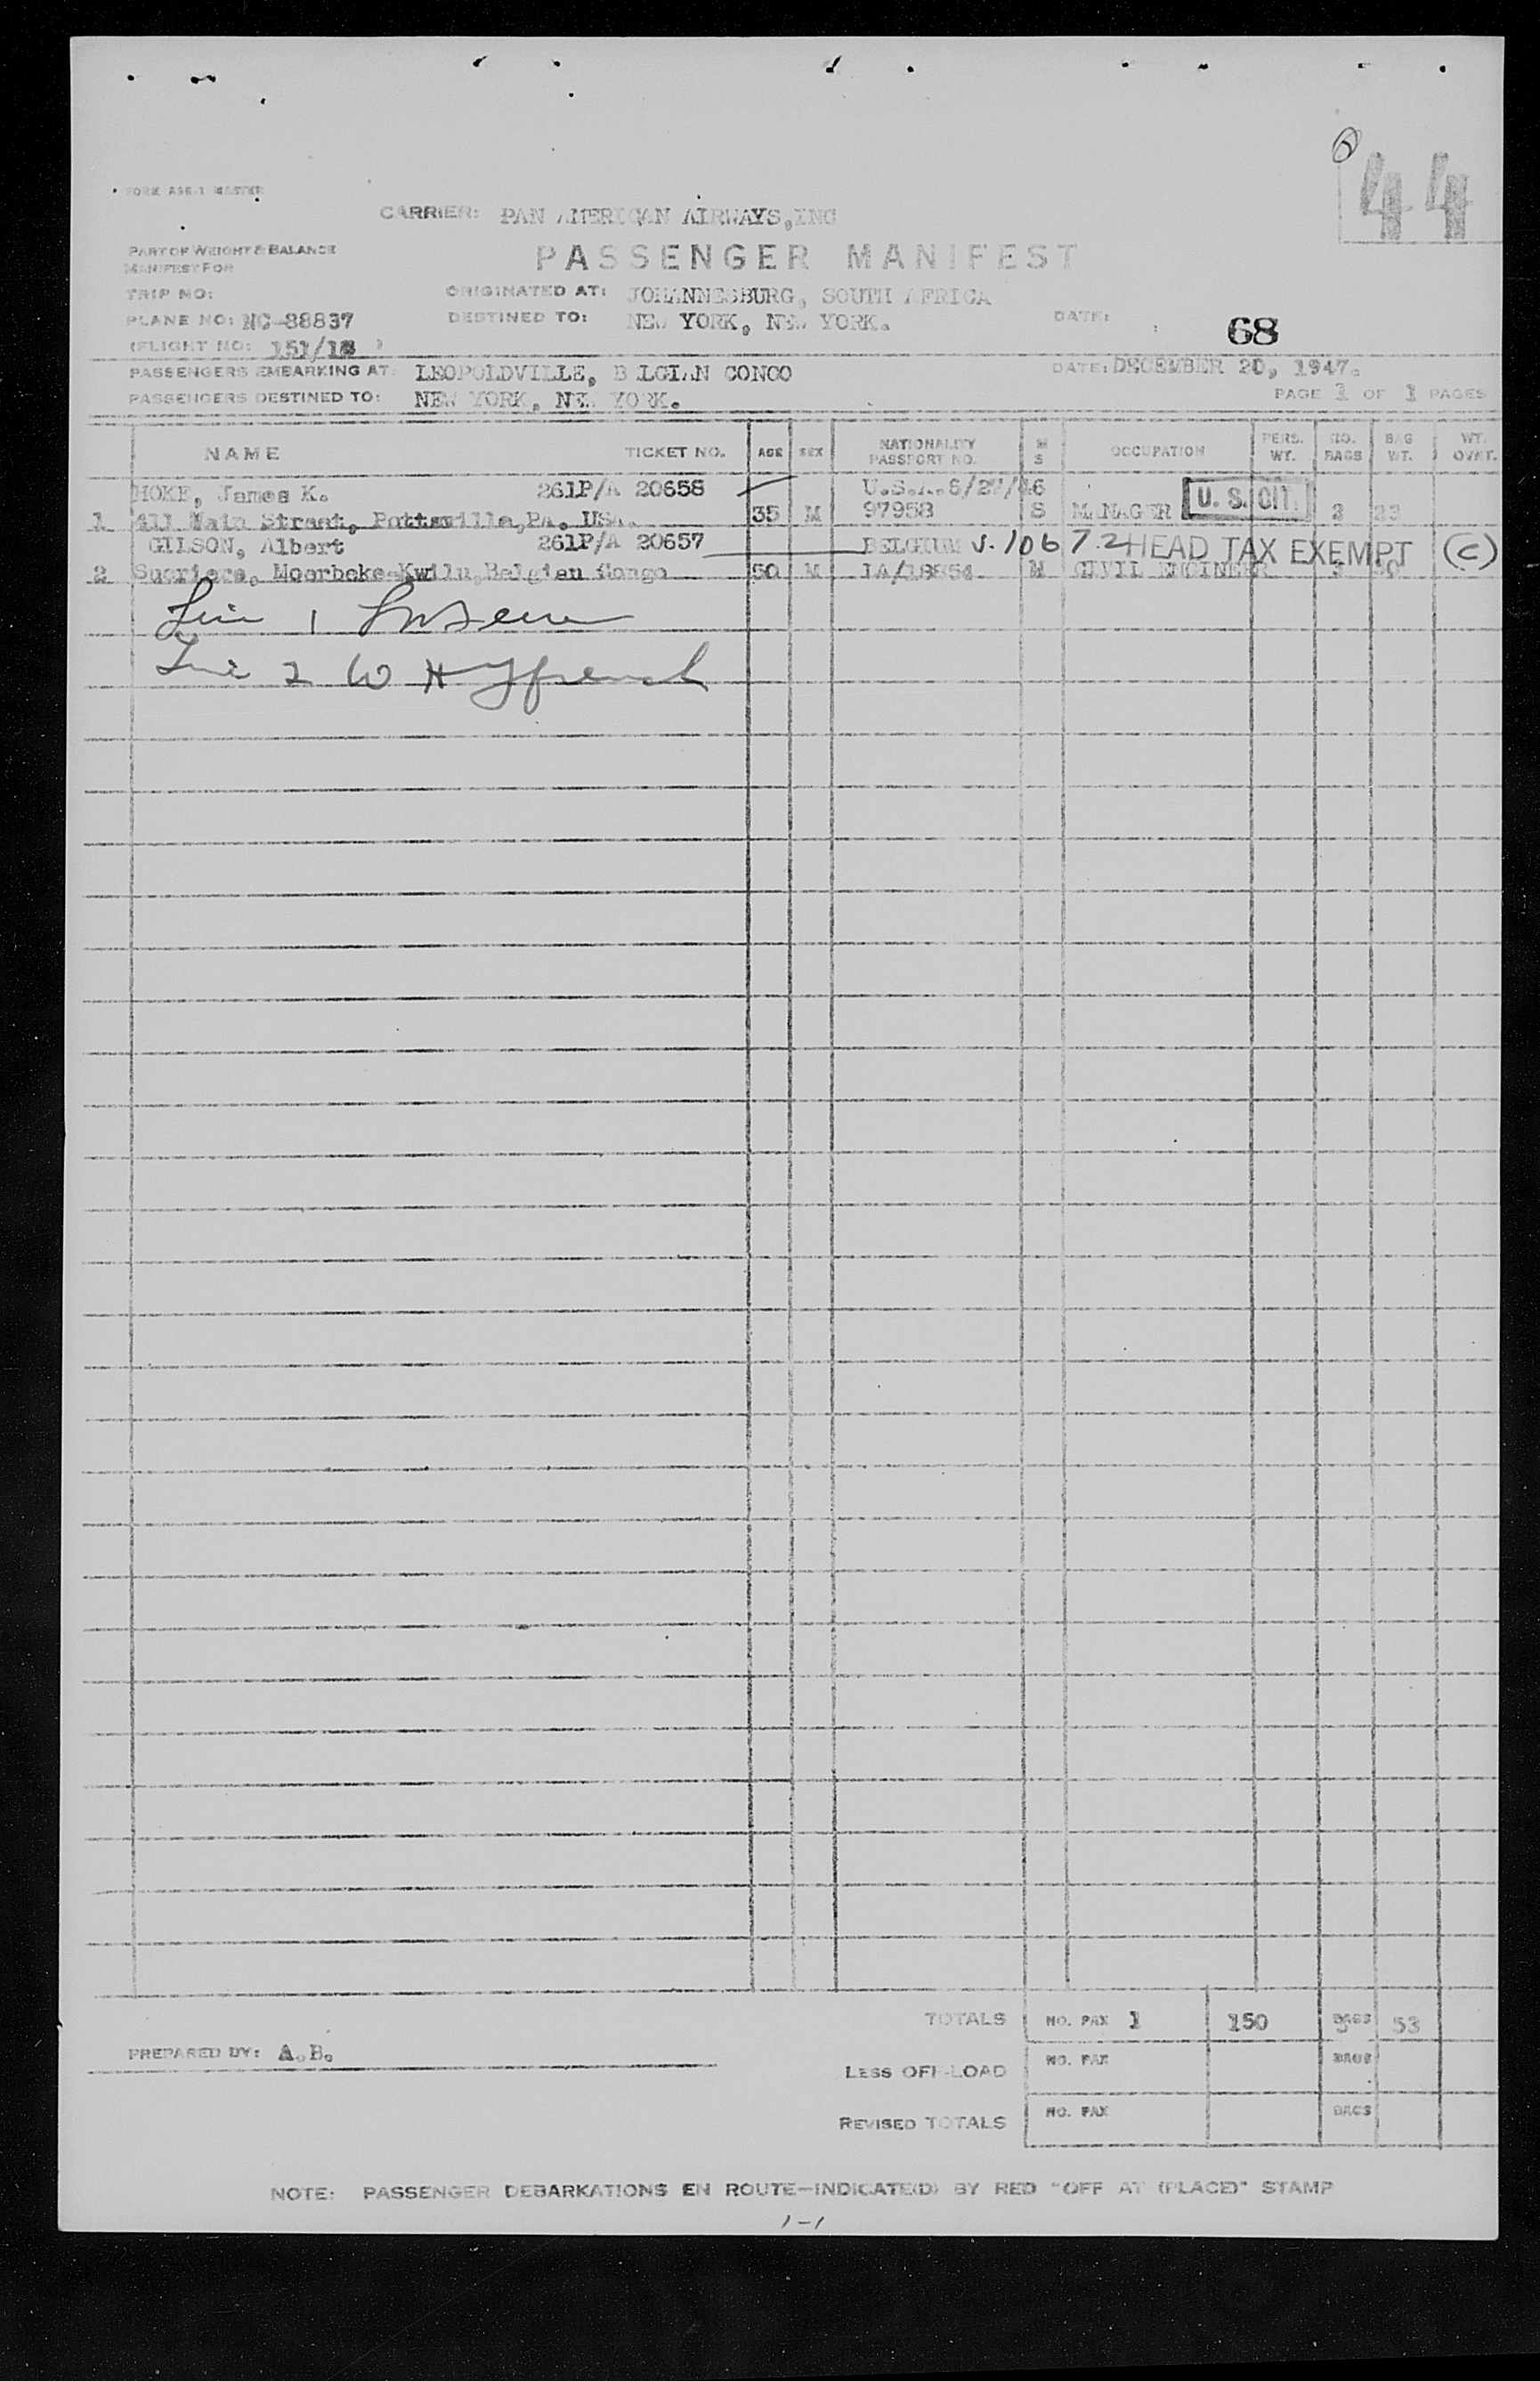 44
FORM
CARRIER: PAN AMERICAN AIRWAYS, INC
PART OF WEIGHT & BALANCE
MANIFEST FOR
PASSENGER MANIFEST
TRIP NO:
ORIGINATED AT: JOHANNESBURG, SOUTH AFRICA
PLANE NO: NC-88837
DESTINED TO: NEW YORK, NEW YORK.
DATE:
68
(FLIGHT NO: 151/18 )
PASSENGERS EMBARKING AT: LEOPOLDVILLE, B LGIAN CONGO
DATE: DECEMBER 20, 1947.
PASSENGERS DESTINED TO: NEW YORK, NEW YORK.
PAGE 1 OF 1 PAGES
NAME TICKET NO. AGE SEX NATIONALITY PASSPORT NO. M S OCCUPATION PERS. WT. NO. BAGS BAG WT. WT. OVRT.
HOKE, James K. 261P/A 20658 U.S.A. 6/27/46
1 411 Main Street, Pottsville, PA. USA. 35 M 97958 S MANAGER U. S. 2 23
GILSON, Albert 261P/A 20657 BELGIUM V. 1067.2 HEAD TAX EXEMPT (C)
2 Moerbeke Kwilu, Belgian Congo 50 M M CIVIL ENGINEER
Line 1
Line 2 W H
TOTALS NO. PAX 1 150 BAGS 53
PREPARED BY: A.B.
LESS OFF-LOAD NO. PAX BAGS
REVISED TOTALS NO. PAX BAGS
NOTE: PASSENGER DEBARKATIONS EN ROUTE—INDICATE(D) BY RED "OFF AT (PLACE)" STAMP
1-1